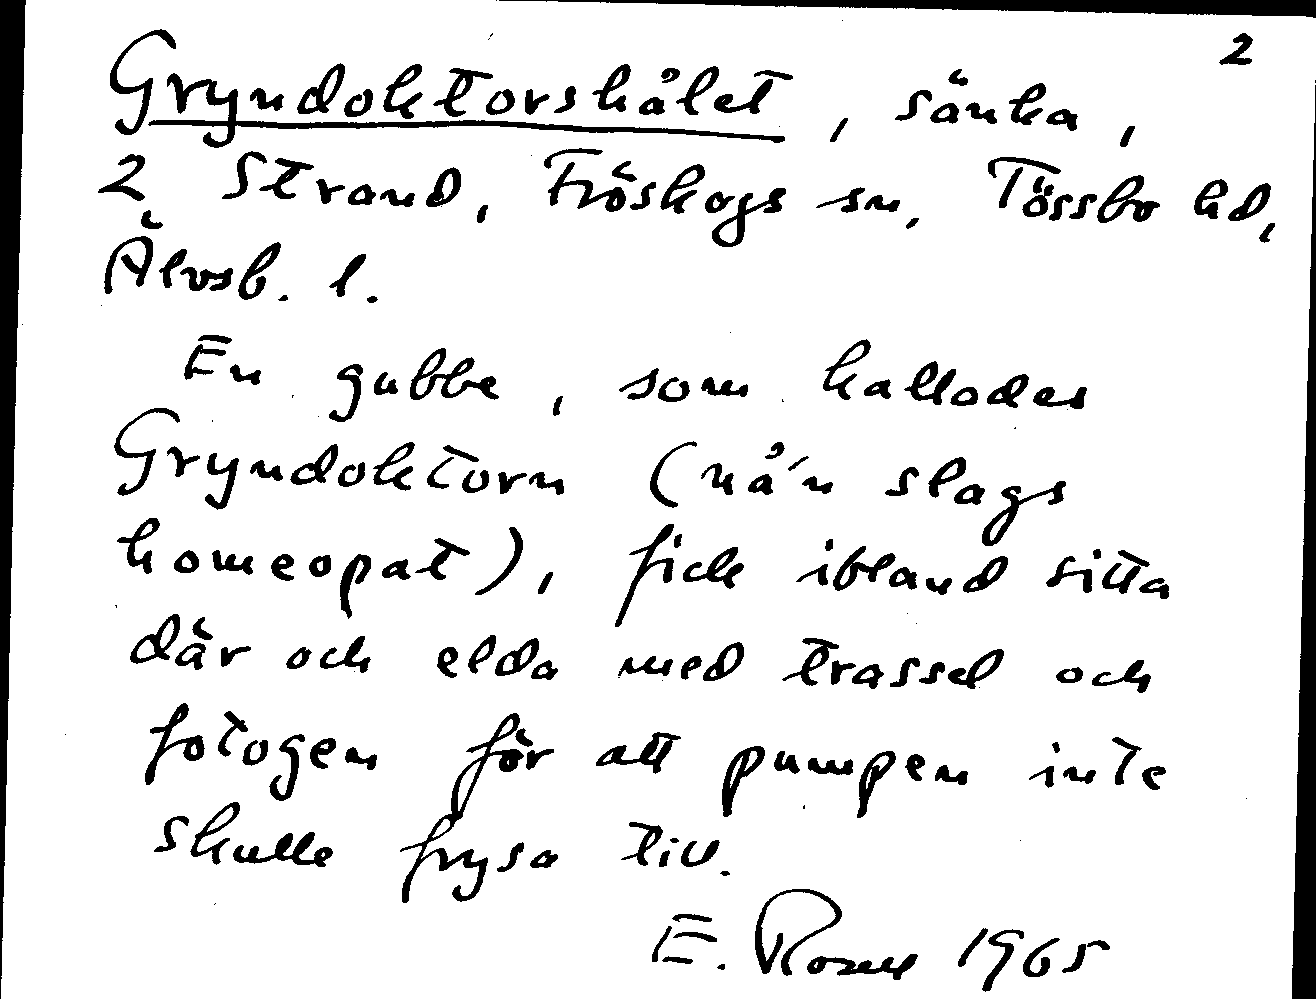 2
Gryndoktorshålet, sänka,
2 Strand, Fröskogs sn, Tössbo hd,
Älvsb. l.
En gubbe, som kallades
Gryndoktorn (nå'n slags
homeopat), fick ibland sitta
där och elda med trassel och
fotogen för att pumpen inte
skulle frysa till.
E. 1965